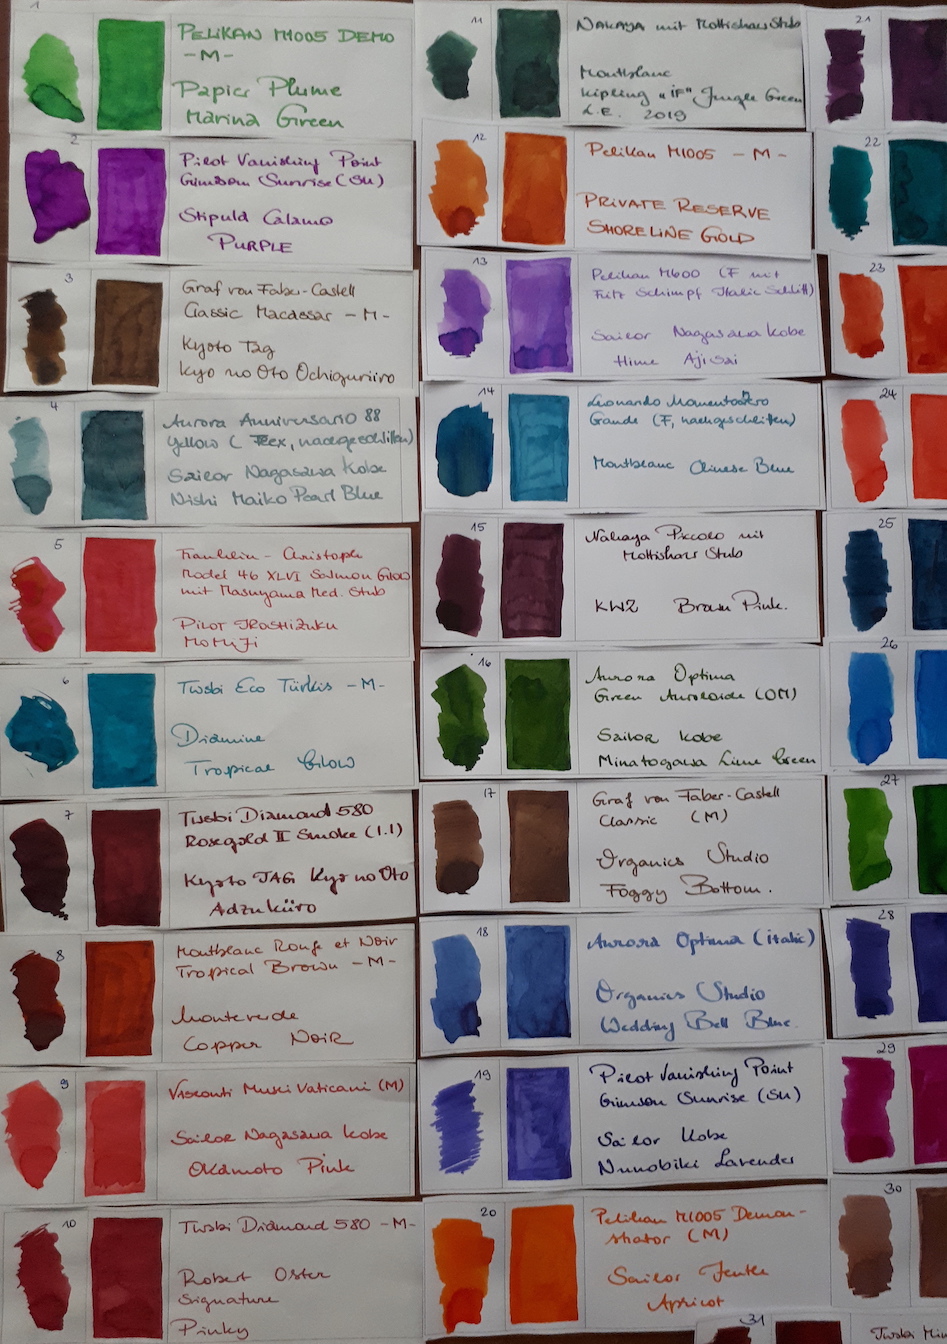 1
PELIKAN M1005 DEMO
-M-
Papier Plume
Marina Green
2
Pilot Vanishing Point
Crimson Sunrise (SU)
Stipula Calamo
PURPLE
3
Graf von Faber-Castell
Classic Macassar -M-
Kyoto Tag
Kyo no Oto Ochiguriiro
4
Aurora Anniversario 88
Yellow (Flex, nachgeschliffen)
Sailor Nagasawa Kobe
Nishi Maiko Pearl Blue
5
Franklin-Christoph
Model 46 XLVI Salmon Glow
mit Masuyama Med. Stub
Pilot IROSHIZUKU
MOMIJI
6
Twsbi Eco Türkis -M-
Diamine
Tropical Glow
7
Twsbi Diamond 580
Rosegold II Smoke (1.1)
Kyoto TAG Kyo no Oto
Adzukiiro
8
Montblanc Rouge et Noir
Tropical Brown -M-
Monteverde
Copper Noir
9
Visconti Musei Vaticani (M)
Sailor Nagasawa Kobe
Okamoto Pink
10
Twsbi Diamond 580 -M-
Robert Oster
Signature
Pinky
11
NAKAYA mit Mottishaw Stub
Montblanc
Kipling "IF" Jungle Green
L.E. 2019
12
Pelikan M1005 -M-
PRIVATE RESERVE
SHORELINE GOLD
13
Pelikan M600 (F mit
Fritz Schimpf Italic Schliff)
Sailor Nagasawa Kobe
Hime Ajisai
14
Leonardo Momento Zero
Grande (F, nachgeschliffen)
Montblanc Chinese Blue
15
Nakaya Piccolo mit
Mottishaw Stub
KWZ Brown Pink.
16
Aurora Optima
Green Auroloide (OM)
Sailor Kobe
Minatogawa Lime Green
17
Graf von Faber-Castell
Classic (M)
Organics Studio
Foggy Bottom.
18
Aurora Optima (italic)
Organics Studio
Wedding Bell Blue.
19
Pilot Vanishing Point
Crimson Sunrise (SU)
Sailor Kobe
Nunobiki Lavender
20
Pelikan M1005 Demon-
strator (M)
Sailor Jentle
Apricot
21
22
23
24
25
26
27
28
29
30
31
Twsbi Mini